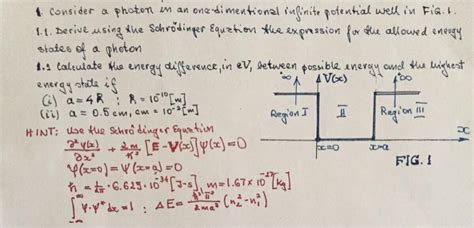 1. Consider a photon in an one-dimentional infinite potential well in FiG. 1.
1.1. Derive using the Schrödinger Equation the expression for the allowed energy
states of a photon
1.2 Calculate the energy difference, in eV, between possible energy and the highest
energy state if
(i) a = 4Å ; Å = 10⁻¹⁰ [m]
(ii) a = 0.5 cm, cm = 10⁻² [m]
HINT: Use the Schrödinger Equation
∂²Ψ(x)/∂x² + 2m/ħ² [E - V(x)] Ψ(x) = 0
Ψ(x=0) = Ψ(x=a) = 0
ħ = 1/2π · 6.625 · 10⁻³⁴ [J-s], m = 1.67 × 10⁻²⁷ [kg]
∫ Ψ·Ψ* dx = 1 ; ΔE = ħ²π²/2ma² (n₂² - n₁²)
-∞
∞ V(x) ∞
Region I II Region III
x=0 x=a x
FIG. 1